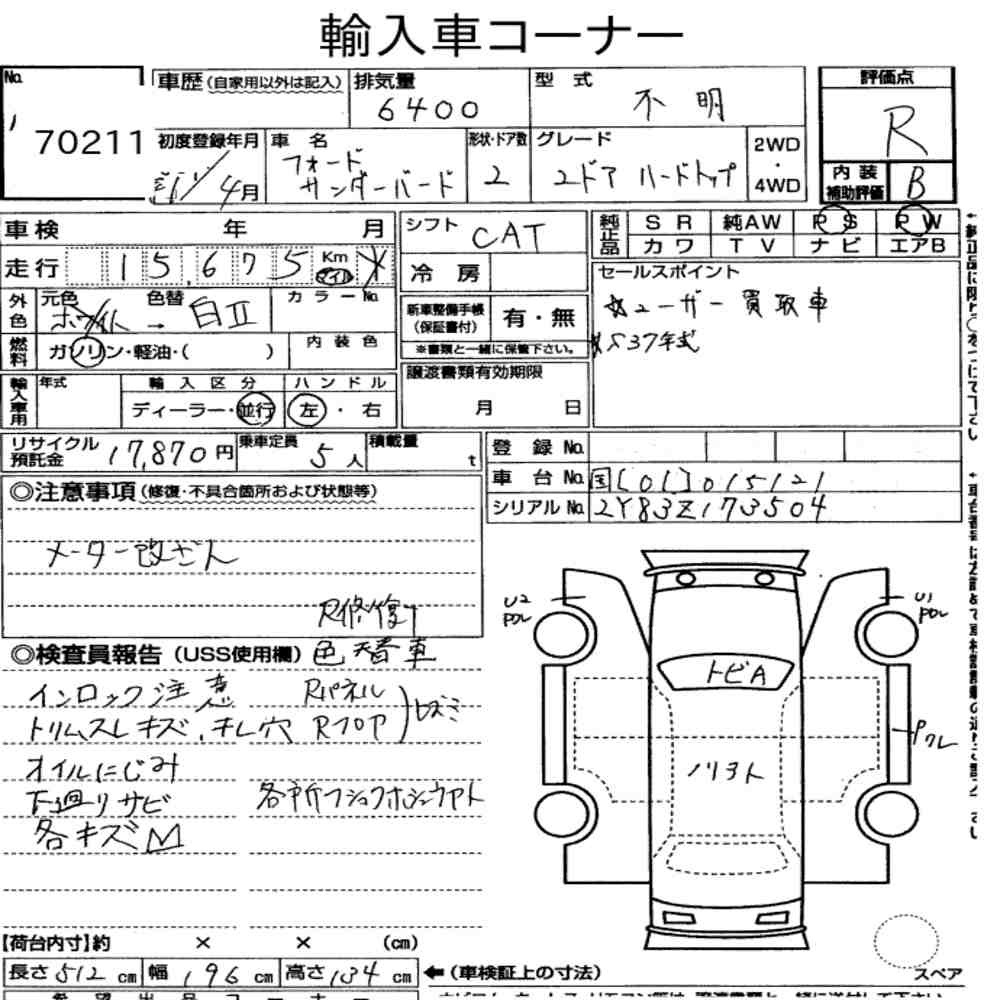 輸入車コーナー
No. 70211
車歴(自家用以外は記入) 排気量 6400 型式 不明 評価点 R
初度登録年月 4月 車名 フォード サンダーバード 形状・ドア数 2 グレード 2ドア ハードトップ 2WD・4WD 内装補助評価 B
車検 年 月 シフト CAT 純正品 SR 純AW PS PW
カワ TV ナビ エアB
走行 15,675 Km マイル 冷房 セールスポイント
外色 元色 ホワイト → 色替 白II カラーNo. 新車整備手帳(保証書付) 有・無 ユーザー買取車
※書類と一緒に保管下さい。 S37年式
燃料 ガソリン・軽油・( ) 内装色 譲渡書類有効期限
月 日
輸入車用 年式 輸入区分 ディーラー・並行 ハンドル 左・右
リサイクル預託金 17,870円 乗車定員 5人 積載量 t 登録No.
車台No. 国[01]015121
シリアルNo. 2Y83Z173504
◎注意事項(修復・不具合箇所および状態等)
メーター改ざん
R修復
◎検査員報告(USS使用欄) 色替車
インロック注意 Rパネル
トリムスレキズ、キレ穴 Rフロア
オイルにじみ
下廻りサビ
各キズ
U2
U1
トビA
【荷台内寸】約 × × (cm)
長さ 512 cm 幅 196 cm 高さ 134 cm ←(車検証上の寸法)
スペア